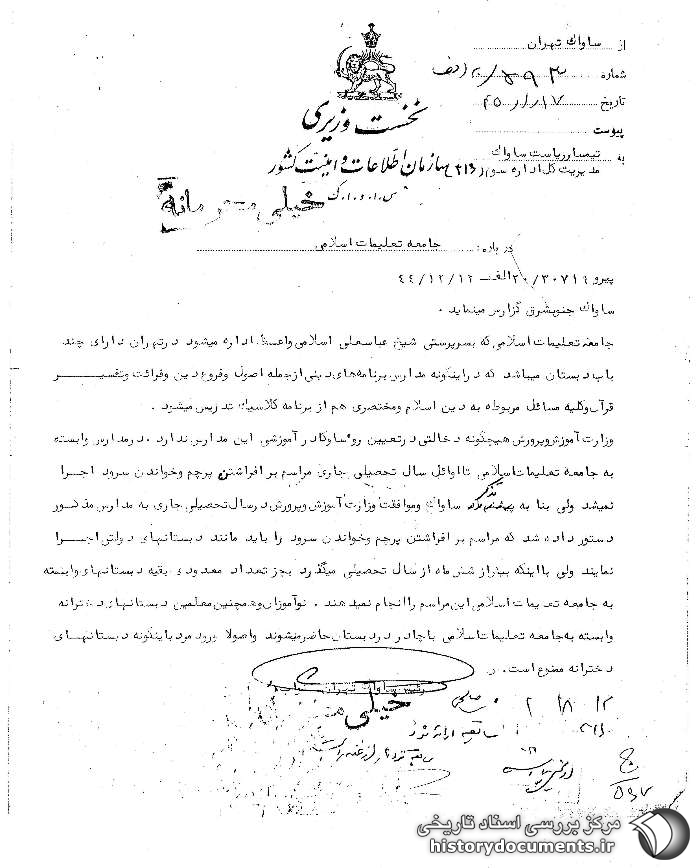 از ساواك تهران
شماره
تاریخ ۴۵/۱/۱۷
پیوست
نخست وزیری
به تیمسار ریاست ساواك
مدیریت کل اداره سوم (۳۱۶)
سازمان اطلاعات و امنیت کشور
س.ا.و.ا.ک
خیلی محرمانه
در باره: جامعه تعلیمات اسلامی
پیرو ۲۰/۳۰۷۱۱ الف - ۴۴/۱۲/۱۲
ساواك جنوبشرق گزارش مینماید .
جامعه تعلیمات اسلامی که بسرپرستی شیخ عباسعلی اسلامی واعظ اداره میشود در تهران دارای چند
باب دبستان میباشد که در اینگونه مدارس برنامه‌های دینی از جمله اصول وفروع دین وقرائت وتفسیر
قرآن وکلیه مسائل مربوطه به دین اسلام ومختصری هم از برنامه کلاسیك تدریس میشود .
وزارت آموزش وپرورش هیچگونه دخالتی در تعیین روسا وکادر آموزشی این مدارس ندارد . در مدارس وابسته
به جامعه تعلیمات اسلامی تا اوائل سال تحصیلی جاری مراسم بر افراشتن پرچم وخواندن سرود اجرا
نمیشد ولی بنا به تذکر ساواك وموافقت وزارت آموزش وپرورش در سال تحصیلی جاری به مدارس مذکور
دستور داده شد که مراسم بر افراشتن پرچم وخواندن سرود را باید مانند دبستانهای دولتی اجرا
نمایند ولی با اینکه بیش از شش ماه از سال تحصیلی میگذرد بجز تعداد معدودی بقیه دبستانهای وابسته
به جامعه تعلیمات اسلامی این مراسم را انجام نمیدهند . نوآموزان وهمچنین معلمین دبستانهای دخترانه
وابسته به جامعه تعلیمات اسلامی با چادر در دبستان حاضر میشوند واصولا ورود مرد باینگونه دبستانهای
دخترانه ممنوع است . ر
رئیس ساواك تهران
خیلی
سابقه ارائه شود
۳۱۶
ج
۵۶۷
مرکز بررسی اسناد تاریخی
historydocuments.ir